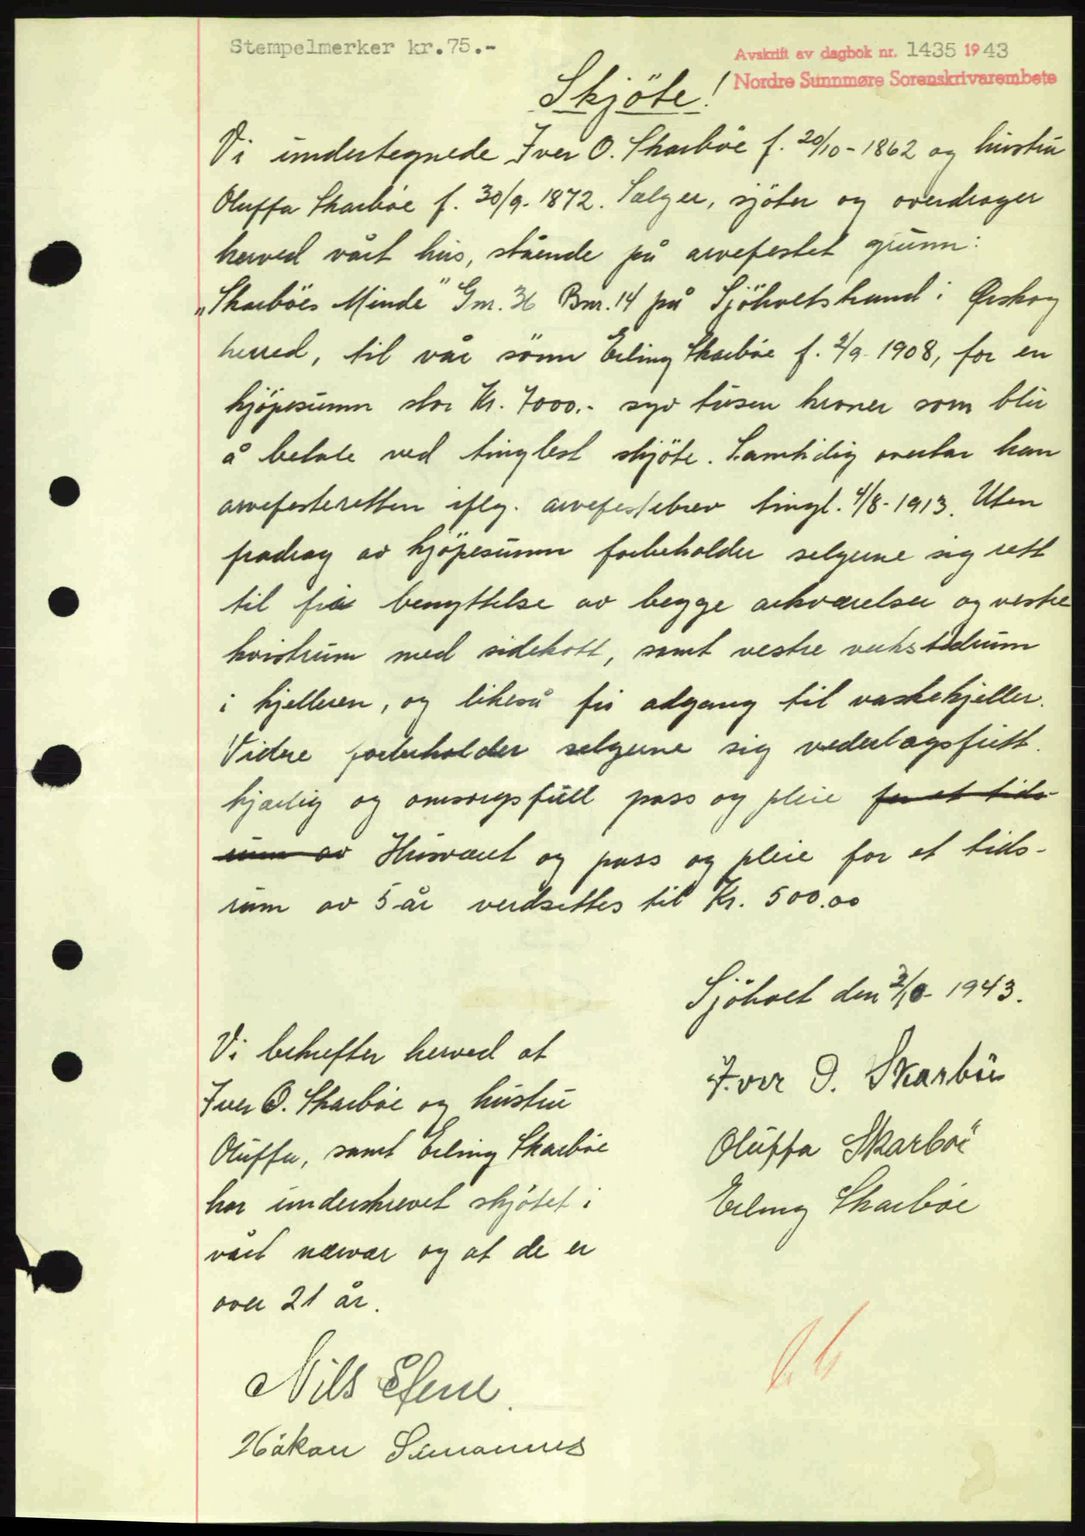 Stempelmerker kr.75.-
Avskrift av dagbok nr. 1435 1943
Nordre Sunnmøre Sorenskrivarembete
Skjöte!
Vi undertegnede Iver O. Skarböe f. 20/10-1862 og hustru
Oluffa Skarböe f. 30/9-1872. Selger, sjöter og overdrager
herved vårt hus, stående på arvefestet grunn:
„Skarböes Minde" Gnr. 36 Bnr. 14 på Sjöholtstrand i Ørskog
herred, til vår sönn Erling Skarböe f. 2/9-1908, for en
kjöpesumm stor Kr. 7000.- syv tusen kroner som blir
å betale ved tinglest skjöte. Samtidig overtar han
arvefesteretten iflg. arvefestebrev tingl. 4/8-1913. Uten
fradrag av kjöpesumm forbeholder selgerne sig rett
til fri benyttelse av begge arkværelser og vestre
kvistrum med sidekott, samt vestre verkstedrum
i kjelleren, og likeså fri adgang til vaskekjeller.
Videre forbeholder selgerne sig vederlagsfritt.
kjærlig og omsorgsfull pass og pleie for et tids-
rum av Husvaret og pass og pleie for et tids-
rum av 5 år verdsettes til Kr. 500.00
Sjöholt den 2/10-1943.
Vi bekrefter herved at
Iver O. Skarböe og hustru
Oluffa, samt Erling Skarböe
har underskrevet skjötet i
vårt nærvær og at de er
over 21 år.
Iver O. Skarböe
Oluffa Skarböe
Erling Skarböe
Nils
Håkon